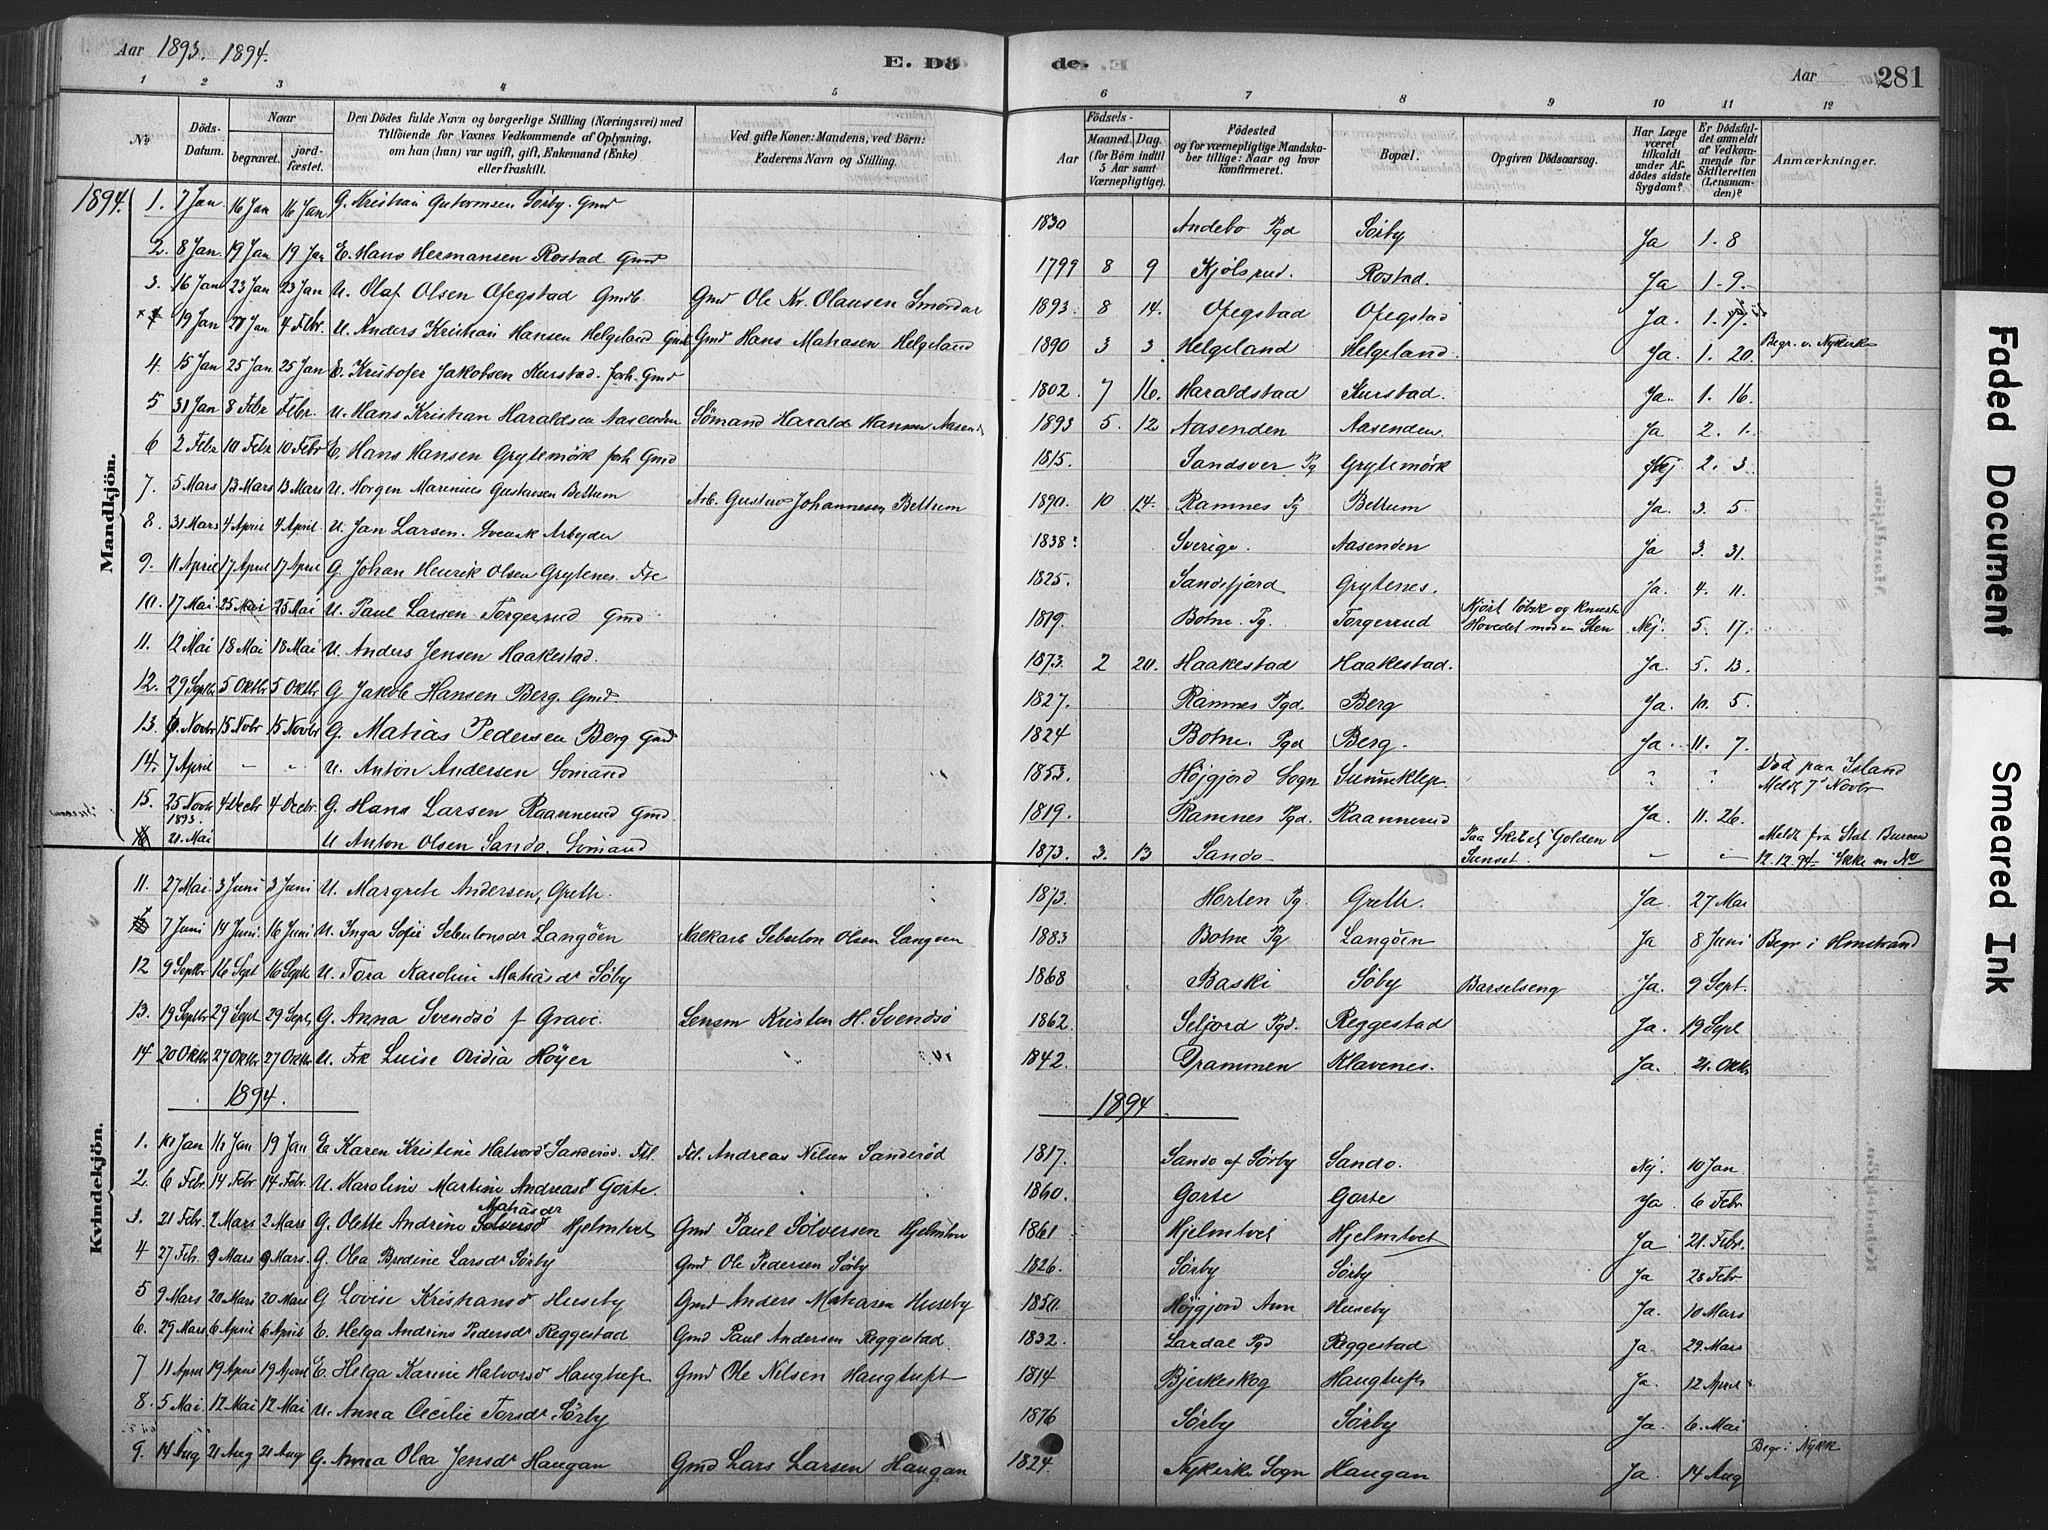 Aar 1893. 1894.
E. Dö
de.
Aar 281
1 2 3 4 5
6 7 8 9 10 11 12
No
Döds-Datum.
Naar
begravet.
jordfæstet.
Den Dödes fulde Navn og borgerlige Stilling (Næringsvei) med
Tilföiende for Voxnes Vedkommende af Oplysning,
om han (hun) var ugift, gift, Enkemand (Enke)
eller fraskilt.
Ved gifte Koner: Mandens, ved Börn:
Faderens Navn og Stilling.
Födsels-
Aar
Maaned. Dag.
(for Börn indtil
5 Aar samt
Værnepligtige).
Födested
og for værnepligtige Mandska-
ber tillige: Naar og hvor
konfirmeret.
Bopæl.
Opgiven Dödsaarsag.
Har Læge
været
tilkaldt
under Af-
dödes sidste
Sygdom?
Er Dödsfal-
det anmeldt
af Vedkom-
mende for
Skifteretten
(Lensman-
den)?
Anmærkninger.
Mandkjön.
1894. 1. 7 Jan 16 Jan 16 Jan G. Kristian Gutormsen Sörby. Gmd 1830 Andebo Pgd Sörby Ja 1. 8
2. 8 Jan 19 Jan 19 Jan E. Hans Hermansen Rostad Gmd 1799 8 9 Kjölsrud. Rostad. Ja 1. 9.
3. 16 Jan 23 Jan 23 Jan U. Olaf Olsen Ofegstad Gmdb. Gmd Ole Kr. Olausen 1893. 8 14. Ofegstad Ofegstad Ja. 1. 17.
19 Jan 27 Jan 4 Febr. U. Anders Kristian Hansen Helgeland Gmd Hans Mathisen Helgeland 1890 3 3 Helgeland Helgeland. Ja. 1. 20. Begr. v. Nykirke
4. 15 Jan 25 Jan 25 Jan E. Kristofer Jakobsen Kurstad. forh. Gmd 1802. 7 16. Haraldstad Kurstad. Ja. 1. 16.
5 31 Jan 8 Febr Febr. U. Hans Kristian Haraldsen Aasenden Sömand Harald Hansen 1893 5. 12 Aasenden Aasenden. Ja 2. 1.
6 2 Febr 10 Febr 10 Febr E. Hans Hansen Grytemörk forh. Gmd 1815. Sandsver Pg Grytemörk Nej 2. 3.
7. 5 Mars 13 Mars 13 Mars U. Horgen Marinius Gustavsen Bettum Arb. Gustav Johannesen Bettum 1890. 10 14. Ramnes Pg Bettum Ja. 3. 5.
8. 31 Mars 4 April 4 April. U. Jan Larsen. Svensk Arbejder 1838? Sverige. Aasenden Ja 3. 31.
9. 11 April 17 April 17 April G. Johan Henrik Olsen Grytenes. 1825. Sandefjord Grytenes. Ja. 4. 11.
10. 17 Mai 25 Mai 25 Mai U. Paul Larsen Torgersrud Gmd 1819. Botne. Pg. Torgerrud Kjört löbsk og knuste Hovedet mod en Sten Nej. 5. 17.
11. 12 Mai 18 Mai 18 Mai U. Anders Jensen Haakestad. 1873. 2 20. Haakestad Haakestad. Ja. 5. 13.
12. 29 Septbr 5 Oktbr 5 Oktbr G Jakob Hansen Berg. Gmd. 1827. Ramnes Pgd. Berg Ja. 10. 5
13. 6 Novbr 15 Nobr 15 Novbr G. Mathias Pedersen Berg Gmd 1824 Botne. Pgd Berg. Ja. 11. 7.
14. 7 April — „ U. Anton Andersen Sömand 1853. Höjgjord Sogn Sunneklep. Död paa Island Meldt 7 Novbr
15. 25 Novbr 4 Decbr 4 Decbr. G. Hans Larsen Raannerud Gmd 1819. Ramnes Pgd. Raannerud Ja. 11. 26.
1893. 21. Mai U Anton Olsen Sando. Sömand 1873. 3. 13 Sando Paa Skibet Golden Sunset. — — Meldt fra Stat. Bureau 12.12.94. Ikke m No
Kvindekjön.
11. 27 Mai 3 Juni 3 Juni U. Margrete Andersen, Greth. 1873. Horten Pg. Greth. Ja. 27 Mai
7 Juni 14 Juni 16 Juni U. Inga Sofie Sebulonsdr Langöen Kalkarb Sebulon Olsen Langöen 1883 Botne Pg Langöen Ja 8 Juni Begr i Hmstrand
12 9 Septbr 16 Sept 16 Septb. U. Tora Karoline Mathiasdr Söby 1868 Baski Söby Barselseng Ja. 9 Sept.
13. 19 Septbr 29 Sept 29 Sept. G. Anna Svendsö f Grave. Lensm Kristen H. Svendsö 1862. Seljord Pgd. Reggestad Ja. 19 Sept
14 20 Oktbr 27 Oktbr 27 Oktbr U. Frk Luise Ovidia Höyer 1842. Drammen Klavenes. Ja. 21. Oktbr
1894. 1894
1. 10 Jan 16 Jan 19 Jan E Karen Kristine Halvord Sanderöd. Fdl. Andreas Nilsen Sanderöd 1817. Sando af Sörby Sando. Nej. 10 Jan
2. 6 Febr. 14 Febr 14 Febr. U. Karoline Martine Andreasd Gorte. 1860. Gorte Gorte Ja 6 Febr
3. 21 Febr. 2 Mars 2 Mars G. Olette Andrine Sölversd Mathisdr Hjelmtvet Gmd Paul Sölversen Hjelmtvet 1861 Hjelmtvet Hjelmtvet Ja 21. Febr.
4 27 Feb. 9 Mars 9 Mars. G. Olea Bredine Larsdr Sörby Gmd Ole Pedersen Sörby 1826. Sörby Sörby Ja 28 Febr
5 9 Mars 20 Mars 20 Mars G Lovise Kristiansd Huseby Gmd Anders Mathisen Huseby 1850. Höjgjord Ann Huseby Ja. 10 Mars
6. 29 Mars 6 April 6 April E. Helga Andrine Pedersdr Reggestad Gmd Paul Andersen Reggestad. 1832. Lardal Pgd Reggestad Ja. 29. Mars
7 11 April 19 April 19 April E. Helga Karine Halvorsd Haugtuft Gmd Ole Nilsen Haugtuft 1814 Bjerkeskog Haugtuft Ja. 12 April
8. 5 Mai 12 Mai 12 Mai U. Anna Cecilie Torsdr Sörby 1876 Sörby Sörby Ja. 6. Mai
9. 14 Aug 21 Aug 21 Aug G. Anna Olea Jensdr Haugan Gmd Lars Larsen Haugan 1824. Nykirke Sogn Haugan Ja. 14 Aug Begr. i Nykk
Faded Document
Smeared Ink